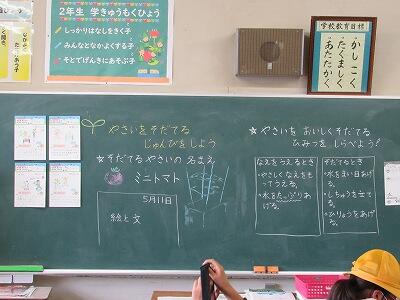 2年生 学きゅうもくひょう
しっかりはなしをきく子
みんなとなかよくする子
そとでげんきにあそぶ子
学校教育目標
かしこく
たくましく
あたたかく
やさいをそだてる
じゅんびをしよう
☆そだてるやさいの名まえ
ミニトマト
5月11日
絵と文
☆やさいを おいしくそだてる
ひみつを しらべよう!
なえをうえるとき
・やさしくなえをも
ってうえる。
・水をたっぷりあ
げる。
そだてるとき
・水をまい日あげ
る。
・しちゅうを立て
る。
・ひりょうをあげ
る。